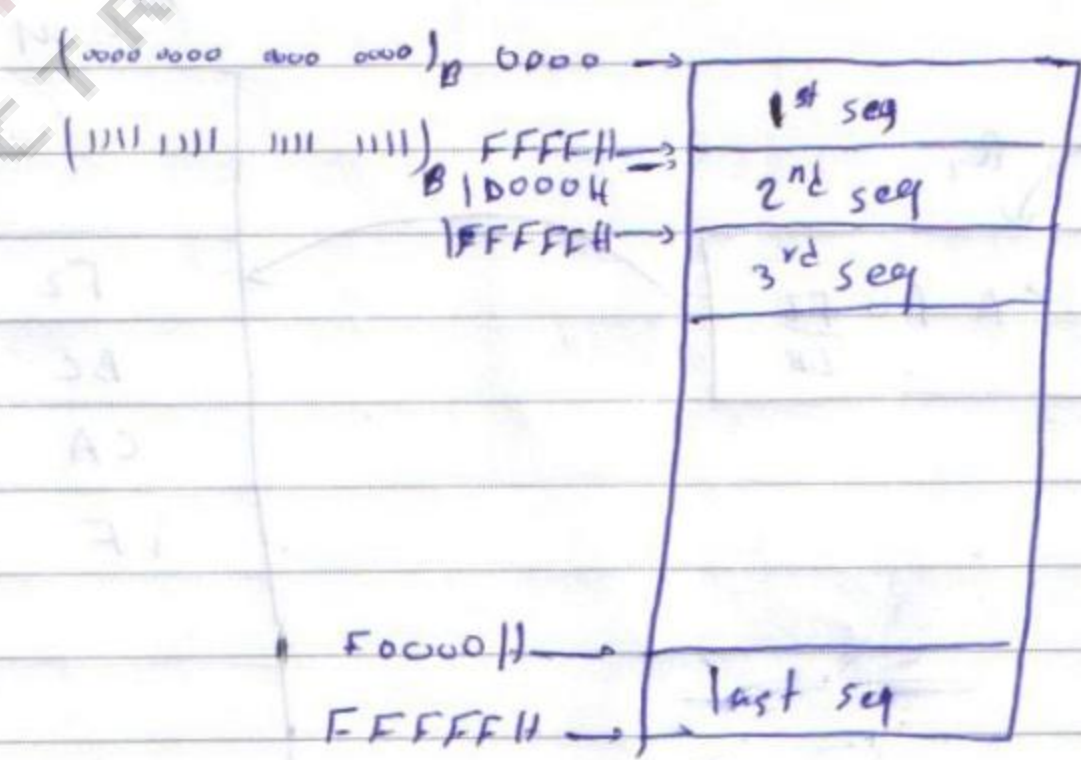 (0000 0000 0000 0000)B 0000 →
1st seg
(1111 1111 1111 1111)B FFFFH →
10000H
2nd seg
1FFFFH →
3rd seg
F0000H →
last seg
FFFFFH →
ETR
F2
BC
CA